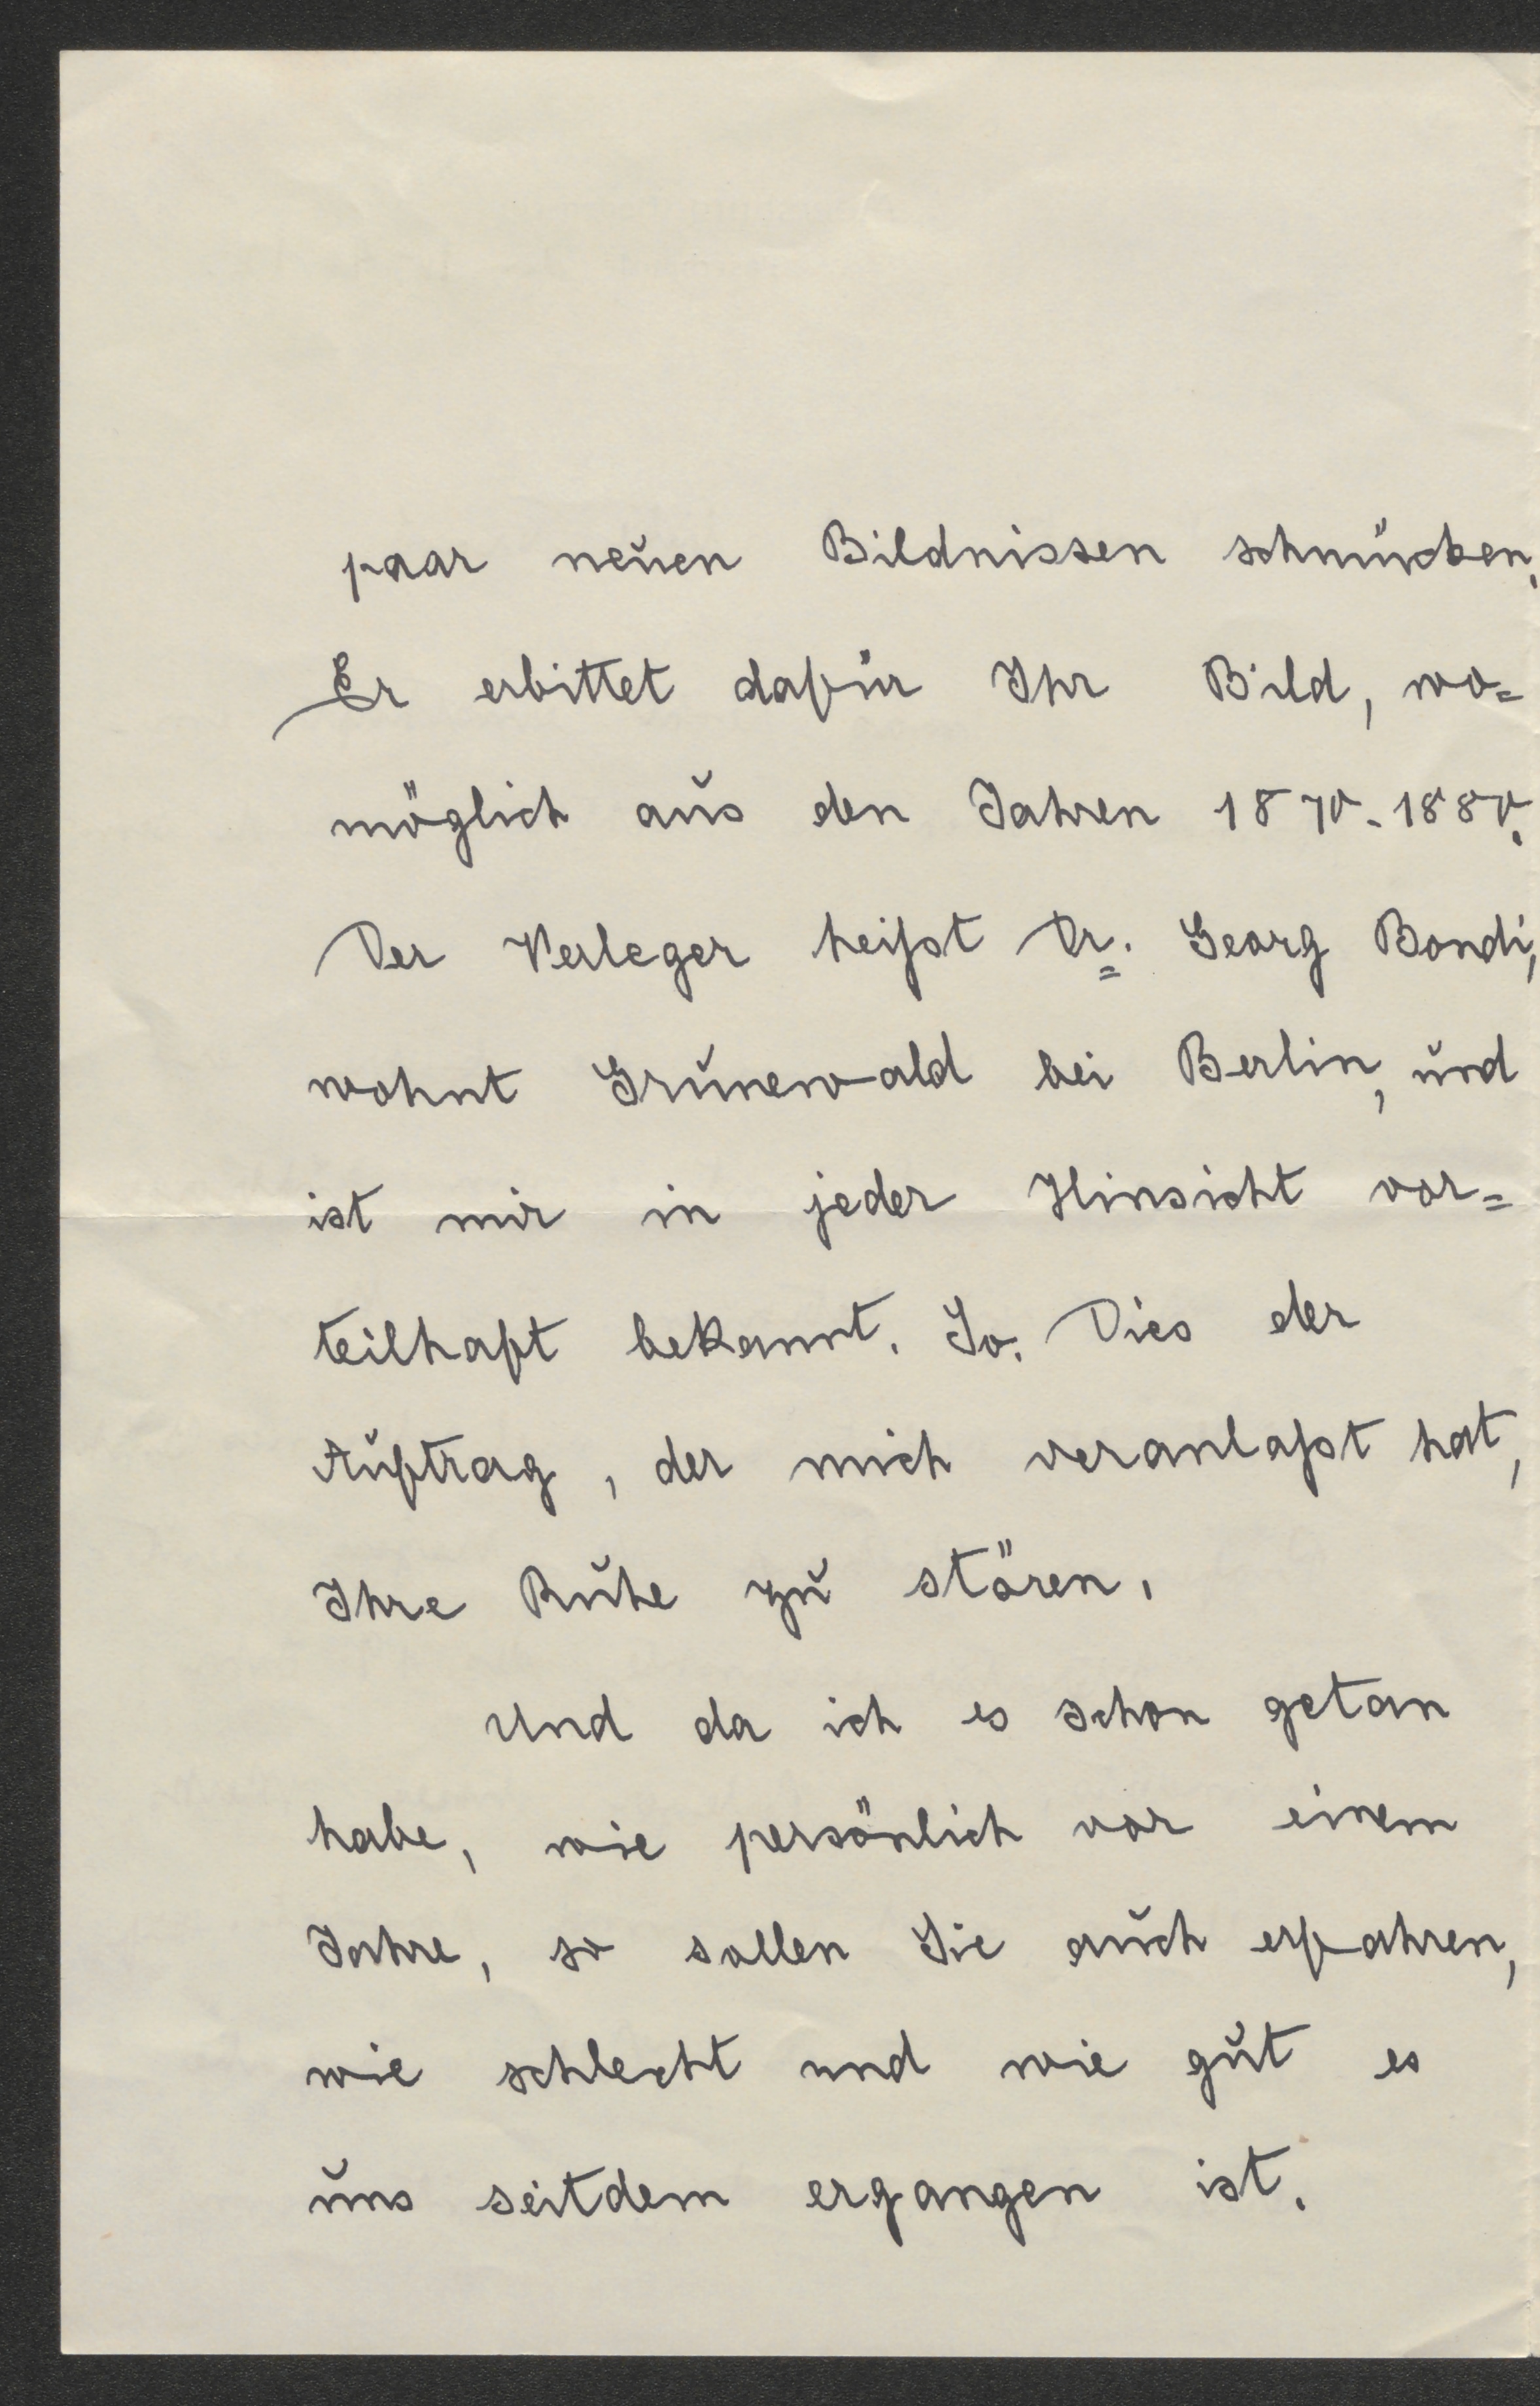 paar neuen Bildnissen schmücken.
Er erbittet dafür Ihr Bild, wo=
möglich aus den Jahren 1870-1880.
Der Verleger heißt Dr. Georg Bondi,
wohnt Grunewald bei Berlin, und
ist mir in jeder Hinsicht vor=
teilhaft bekannt. So. Dies der
Auftrag, der mich veranlaßt hat,
Ihre Ruhe zu stören.
Und da ich es schon getan
habe, wie persönlich vor einem
Jahre, so sollen Sie auch erfahren,
wie schlecht und wie gut es
uns seitdem ergangen ist.